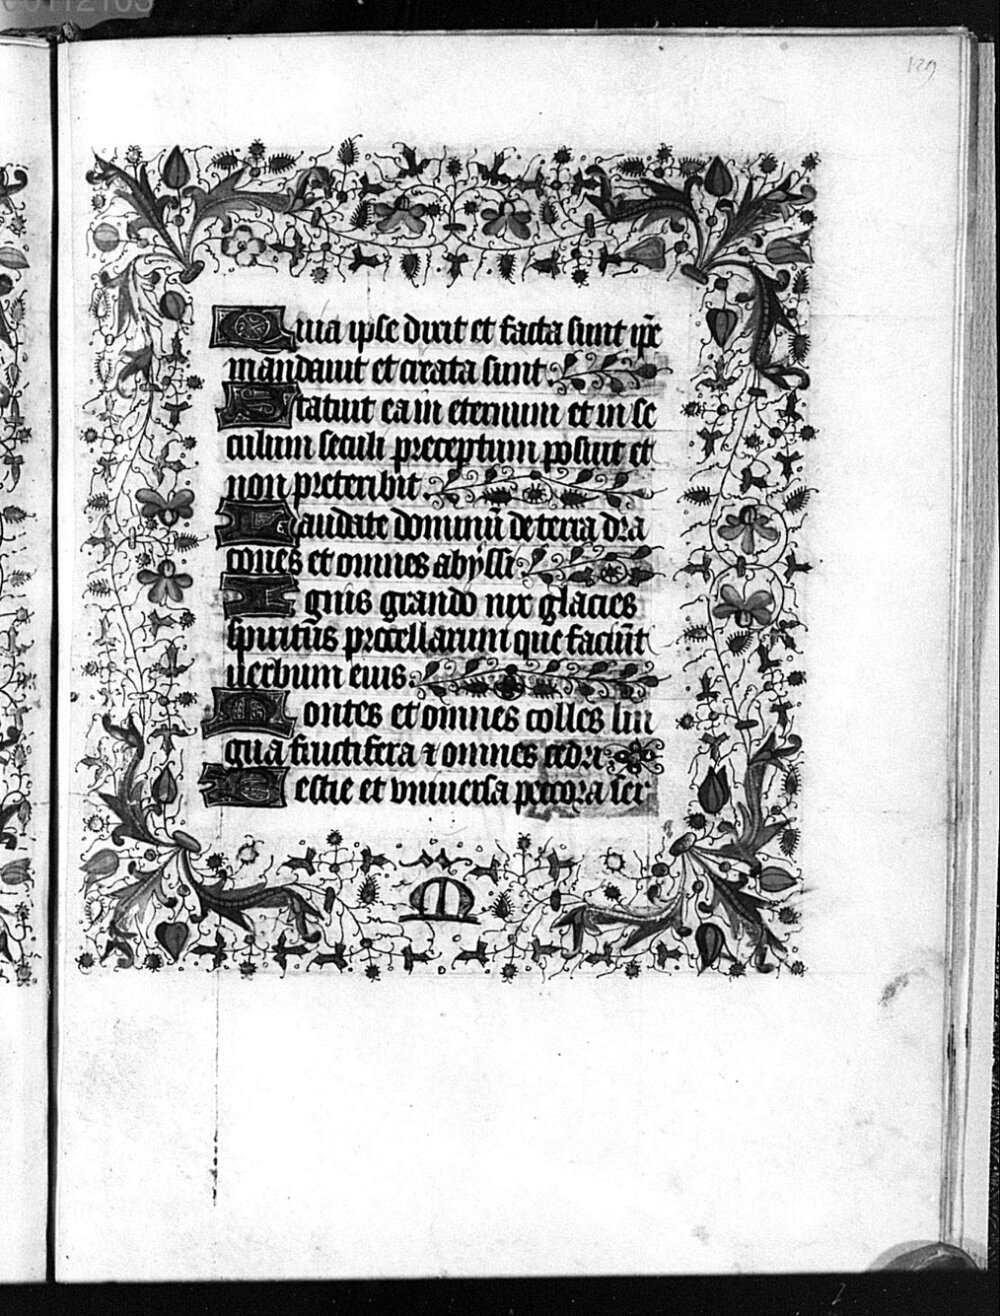 129
Quia ipse dixit et facta sunt ip̄e
mandauit et creata sunt.
Statuit ea in eternum et in se
culum seculi preceptum posuit et
non preteribit.
Laudate dominū de terra dra
cones et omnes abyssi
Ignis grando nix glacies
spiritus procellarum que faciūt
uerbum eius.
Montes et omnes colles lin
gua fructifera ⁊ omnes cedri.
Bestie et vniuersa peccora ser
M